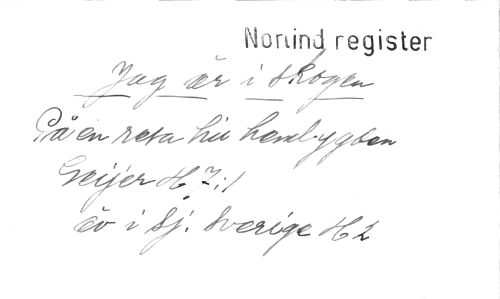 Norlind register
Jag är i skogen
På en resa hit hembygden
Geijer H 7:1
äv i Sj. Sverige H 2